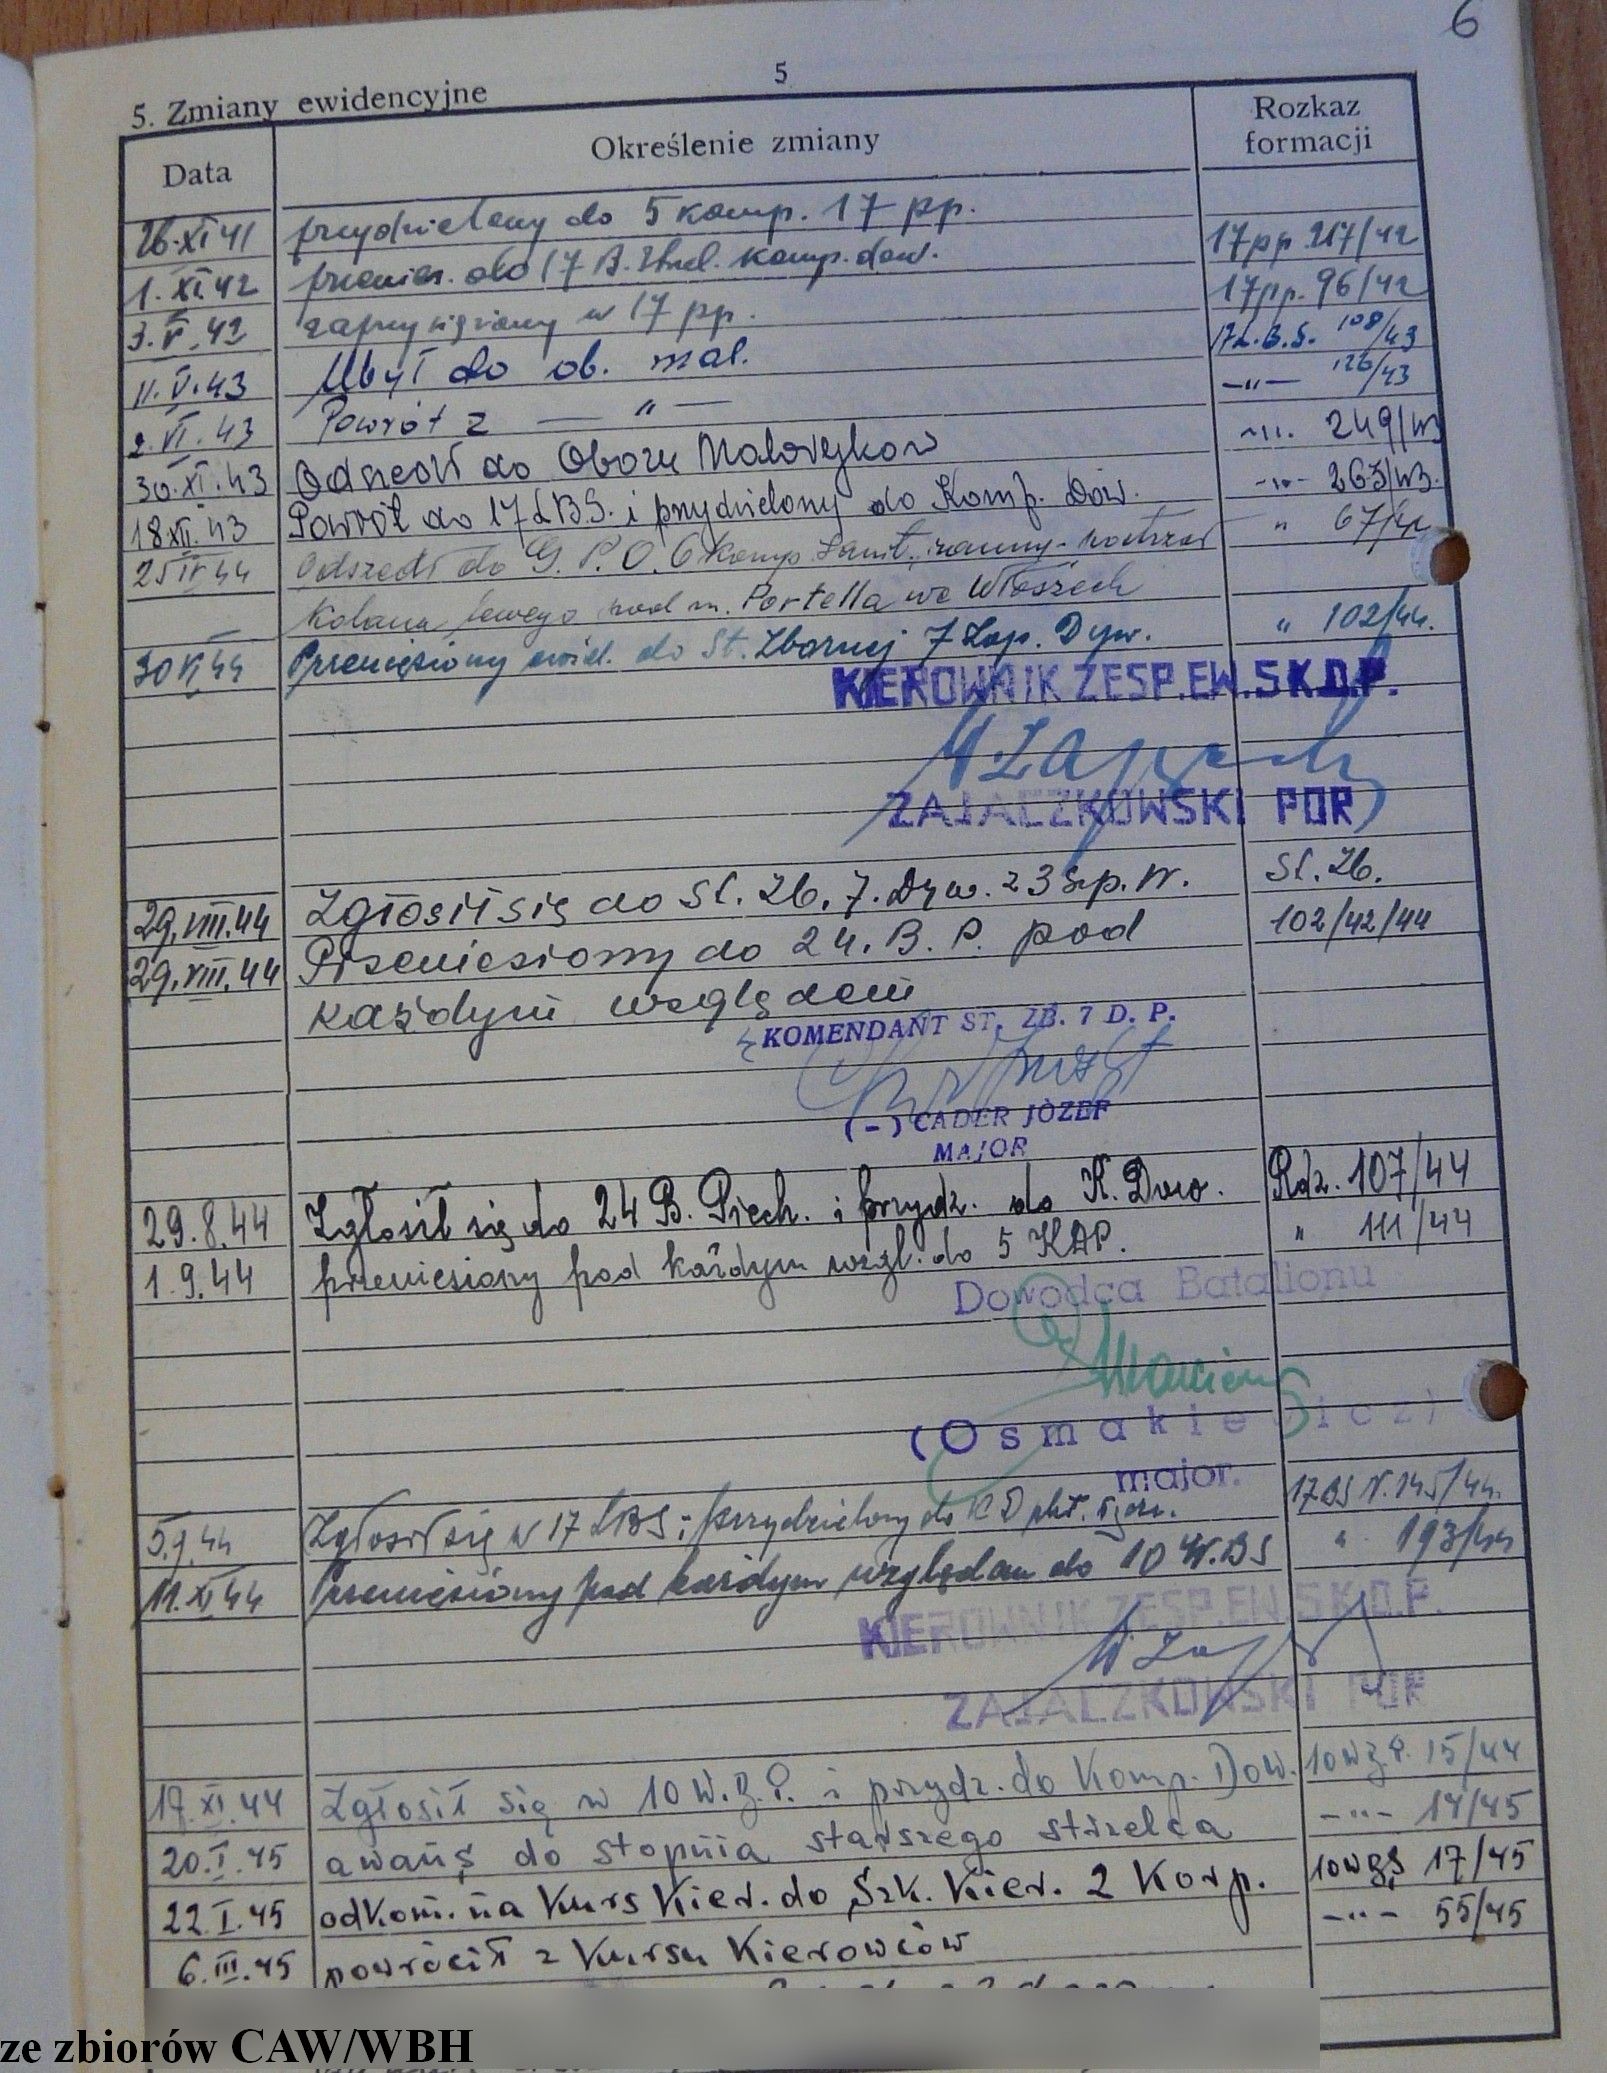 6
5
5. Zmiany ewidencyjne
Data Określenie zmiany Rozkaz formacji
26.XI 41 przydzielony do 5 komp. 17 pp.
1. XI.42 przenies. do 17 B. Strzel. komp. dow. 17 pp. 217/42
3. V. 42 zaprzysiężony w 17 pp. 17 pp. 96/42
11. V. 43 Ubył do ob. mal. 17L.B.S. 108/43
2. VI. 43 Powrót z — " — —"— 126/43
30. XI. 43 Odszedł do Obozu Malarykow —"— 249/43
18 XII. 43 Powrót do 17 LBS. i przydzielony do Komp. Dow. —"— 263/43.
25 IV 44 Odszedł do G. P. O. 6 Komp Sanit., ranny - 
" 67/44
Kolana lewego pod m. Portella we Włoszech
30 VI 44 Przeniesiony ewid. do St. Zbornej 7 Zap. Dyw. " 102/44.
KIEROWNIK ZESP.EW.SK.D.P.
ZAJACZKOWSKI POR
29.VIII.44 Zgłosił się do St. Zb. 7. Dyw. z 3 Szp. W. St. Zb.
29.VIII.44 Przeniesiony do 24. B. P. pod 102/42/44
każdym względem
KOMENDANT ST. ZB. 7 D. P.
(-) CADER JÓZEF
MAJOR
29.8.44 Zgłosił się do 24 B. Piech. i przydz. do K. Dow. Roz. 107/44
1.9.44 przeniesiony pod każdym wzgl. do 5 KDP. " 111/44
Dowódca Batalionu
(Osmakiewicz)
major.
5.9.44 Zgłosił się w 17 LBS i przydzielony do K D plut. 17 BS N. 145/44.
11.XI 44 Przeniesiony pod każdym względem do 10 W.BS " 193/44
KIEROWNIK ZESP.EW.SK.D.P.
ZAJACZKOWSKI POR
17.XI.44 Zgłosił się w 10 W.B.S. i przydz. do Komp. Dow. 15/44
20.I.45 awans do stopnia starszego strzelca —"— 14/45
22.I.45 odkom. na Kurs Kier. do Szk. Kier. 2 Korp. 10WBS 17/45
6.III.45 powrócił z Kursu Kierowców —"— 55/45
ze zbiorów CAW/WBH